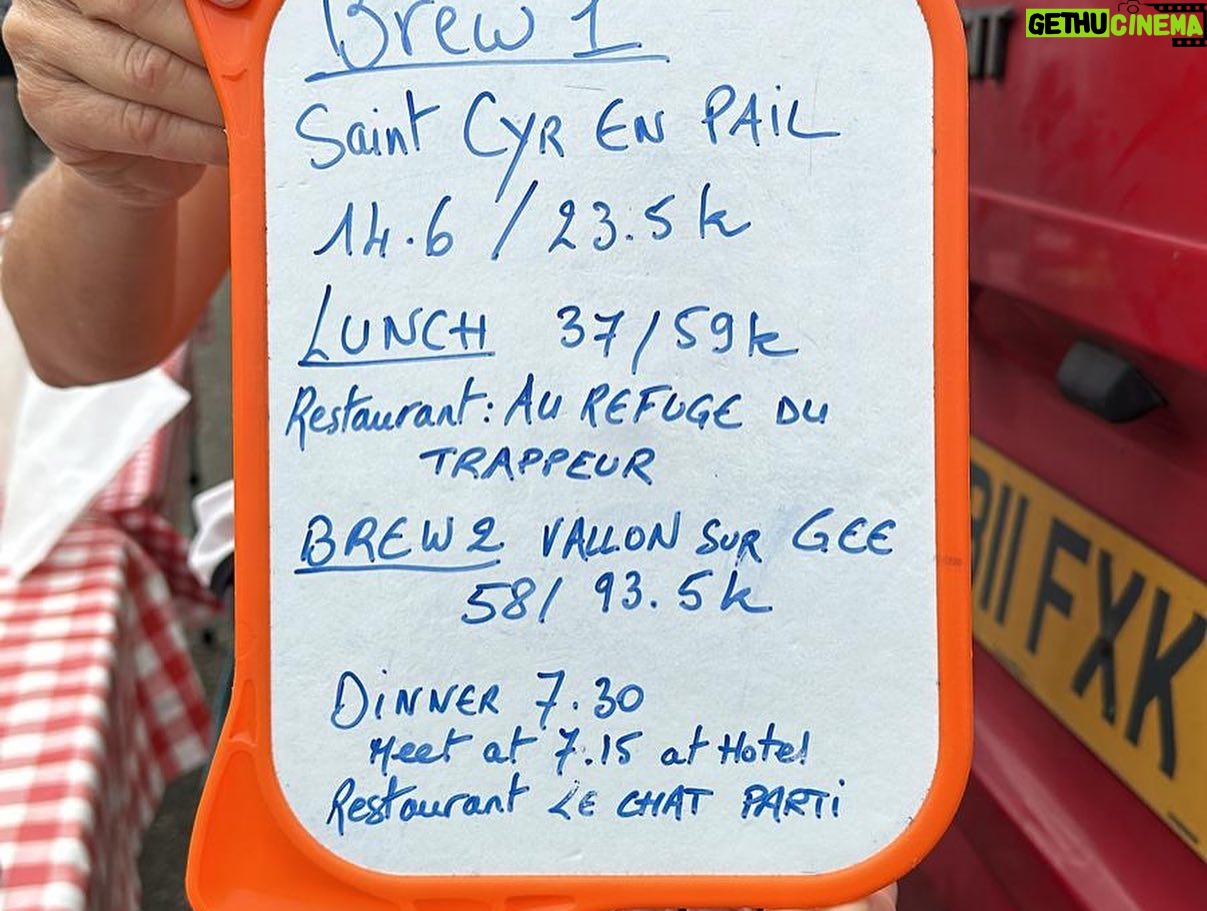 GETHUCINEMA
Brew 1
Saint CYR EN PAIL
14.6 / 23.5k
LUNCH 37/59k
Restaurant: AU REFUGE DU
TRAPPEUR
BREW 2 VALLON SUR GEE
58/ 93.5k
DINNER 7.30
Meet at 7.15 at Hotel
Restaurant LE CHAT PARTi
11 FXK